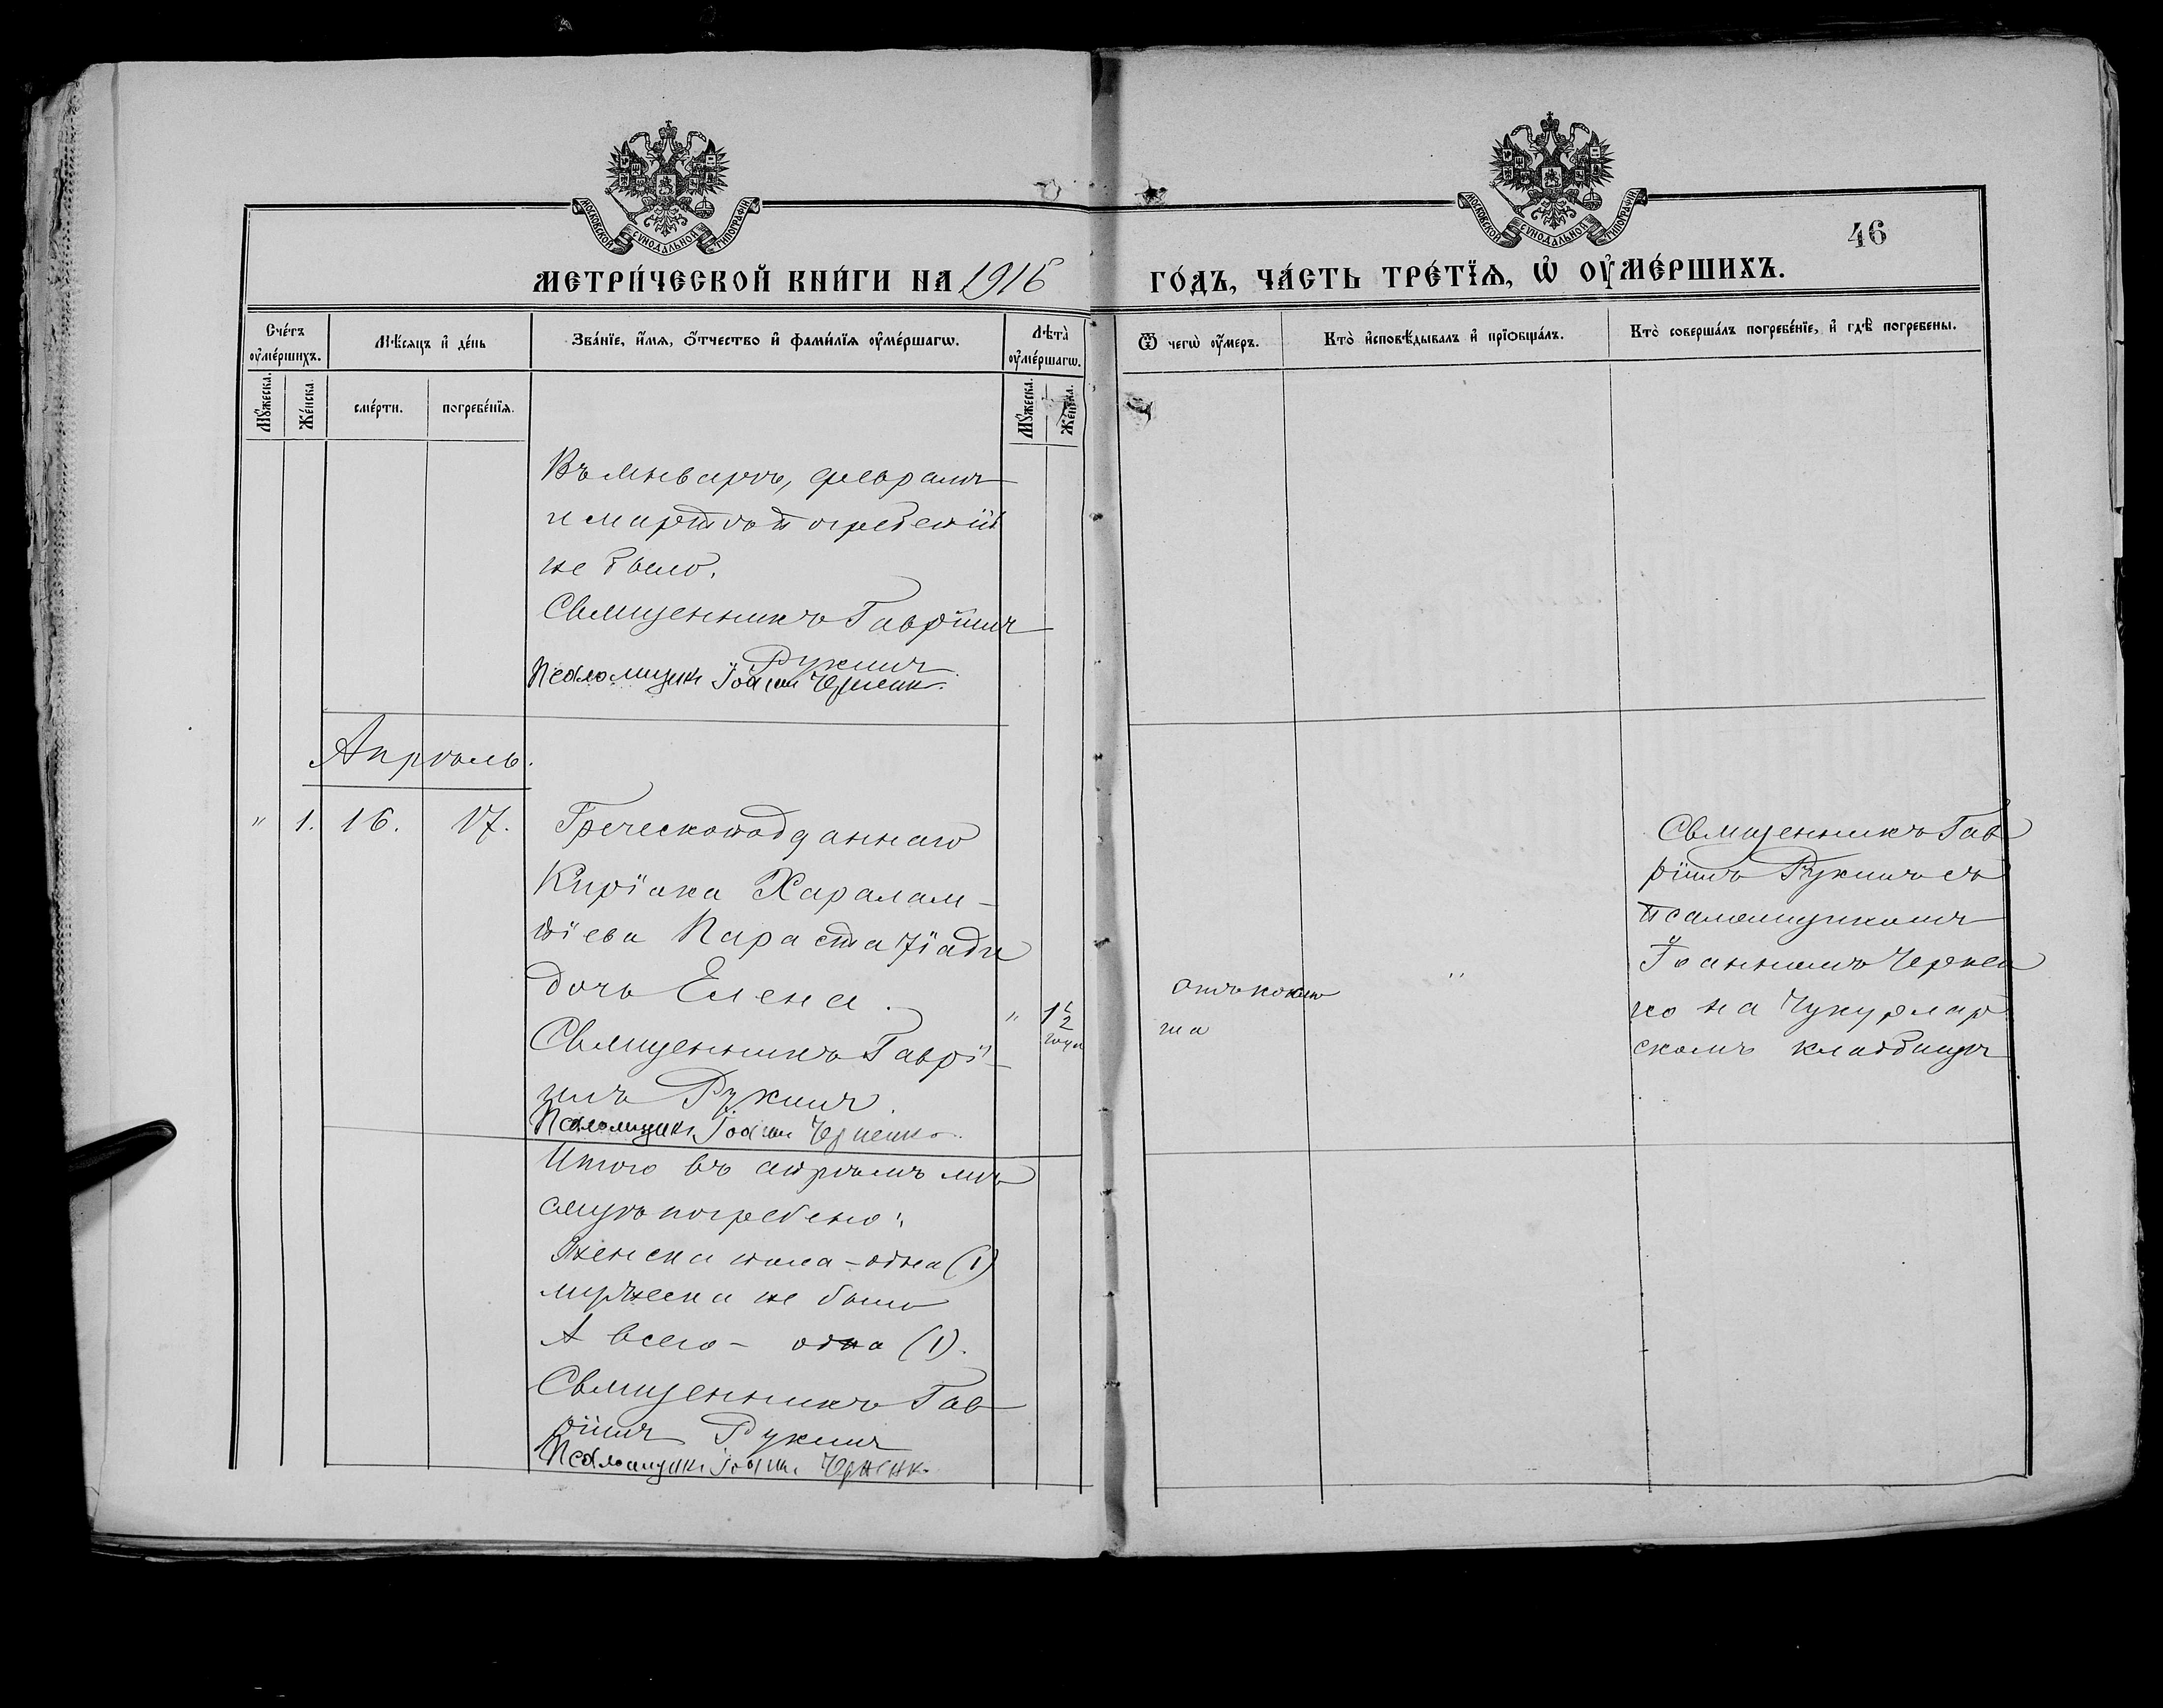 МОСКОВСКОЙ СѴНОДАЛЬНОЙ ТИПОГРАФІИ
МОСКОВСКОЙ СѴНОДАЛЬНОЙ ТИПОГРАФІИ
46
МЕТРИ́ЧЕСКОЙ КНИ́ГИ НА 1916 ГО́ДЪ, ЧА́СТЬ ТРЕ́ТЇѦ, Ѡ҆ ОУ҆МЕ́РШИХЪ.
Сче́тъ оу҆ме́ршихъ.
Мꙋ́жеска.
Же́нска.
Мѣ́сяцъ и҆ де́нь
сме́рти.
погребе́нїѧ.
Зва́нїе, и҆́мѧ, ѻ҆́тчество и҆ фами́лїѧ оу҆ме́ршагѡ.
Лѣта̀ оу҆ме́ршагѡ.
Мꙋ́жеска.
Же́нска.
Ѿ чегѡ̀ оу҆́меръ.
Кто̀ и҆сповѣ́дывалъ и҆ прїѻбща́лъ.
Кто̀ соверша́лъ погребе́нїе, и҆ гдѣ̀ погребены.
Въ январѣ, февралѣ
и мартѣ погребеній
не было.
Священникъ Гавріилъ
Псаломщикъ Іоаннъ Черненко.
Апрѣль.
" 1. 16. 17.
Греческоподданнаго
Киріака Харалам-
піева Парастатіади
дочь Елена.
" 1 1/2 года
Священникъ Гаврі-
илъ
Псаломщикъ Іоаннъ Черненко.
отъ коклю
ша
"
Священникъ Гав
ріилъ съ
псаломщикомъ
Іоанномъ Чернен
ко на Чукурлар
скомъ кладбищѣ
Итого въ апрѣлѣ мѣ
сяцѣ погребено:
Женска пола - одна (1)
мужеска не было
А всего - одна (1).
Священникъ Гав
ріилъ
Псаломщикъ Іоаннъ Черненко.